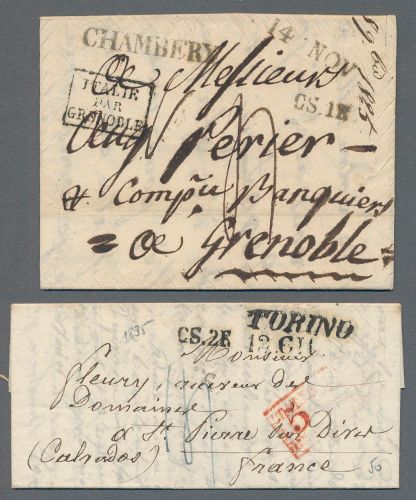 CHAMBERY
14 NOV
CS.1R
ITALIE
PAR
GRENOBLE
1825
de Messieurs
Aug Perier
& Comp.ie Banquiers
= de Grenoble =
1835
CS.2R
TORINO
12 GIU
Monsieur
fleury, receveur des
Domaines
à St. Pierre sur Dives
(Calvados)
france
50